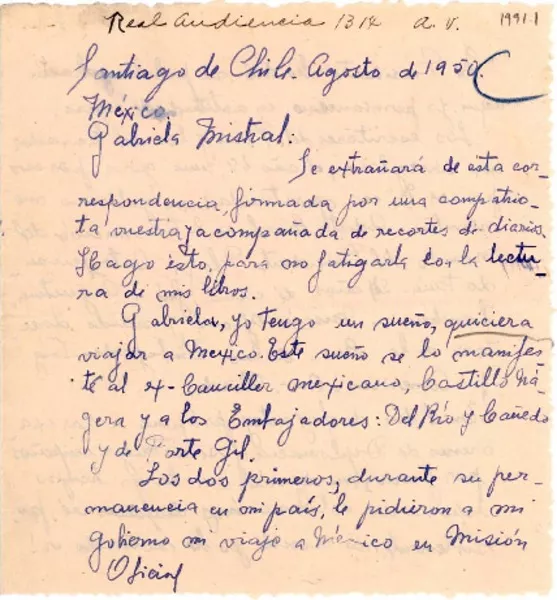 Real Audiencia 1314 a. v. 1991.1
Santiago de Chile. Agosto de 1950.
México.
Gabriela Mistral:
Se extrañará de esta cor-
respondencia, firmada por una compatrio-
ta vuestra y acompañada de recortes de diarios.
Hago ésto, para no fatigarla con la lectu-
ra de mis libros.
Gabriela, yo tengo un sueño, quiciera
viajar a México. Este sueño se lo manifes
té al ex-Canciller mexicano, Castillo Ná-
gera y a los Embajadores: Del Río y Cañedo
y de Porte Gil.
Los dos primeros, durante su per-
manencia en mi país, le pidieron a mi
gobierno mi viaje a México en Misión
Oficial